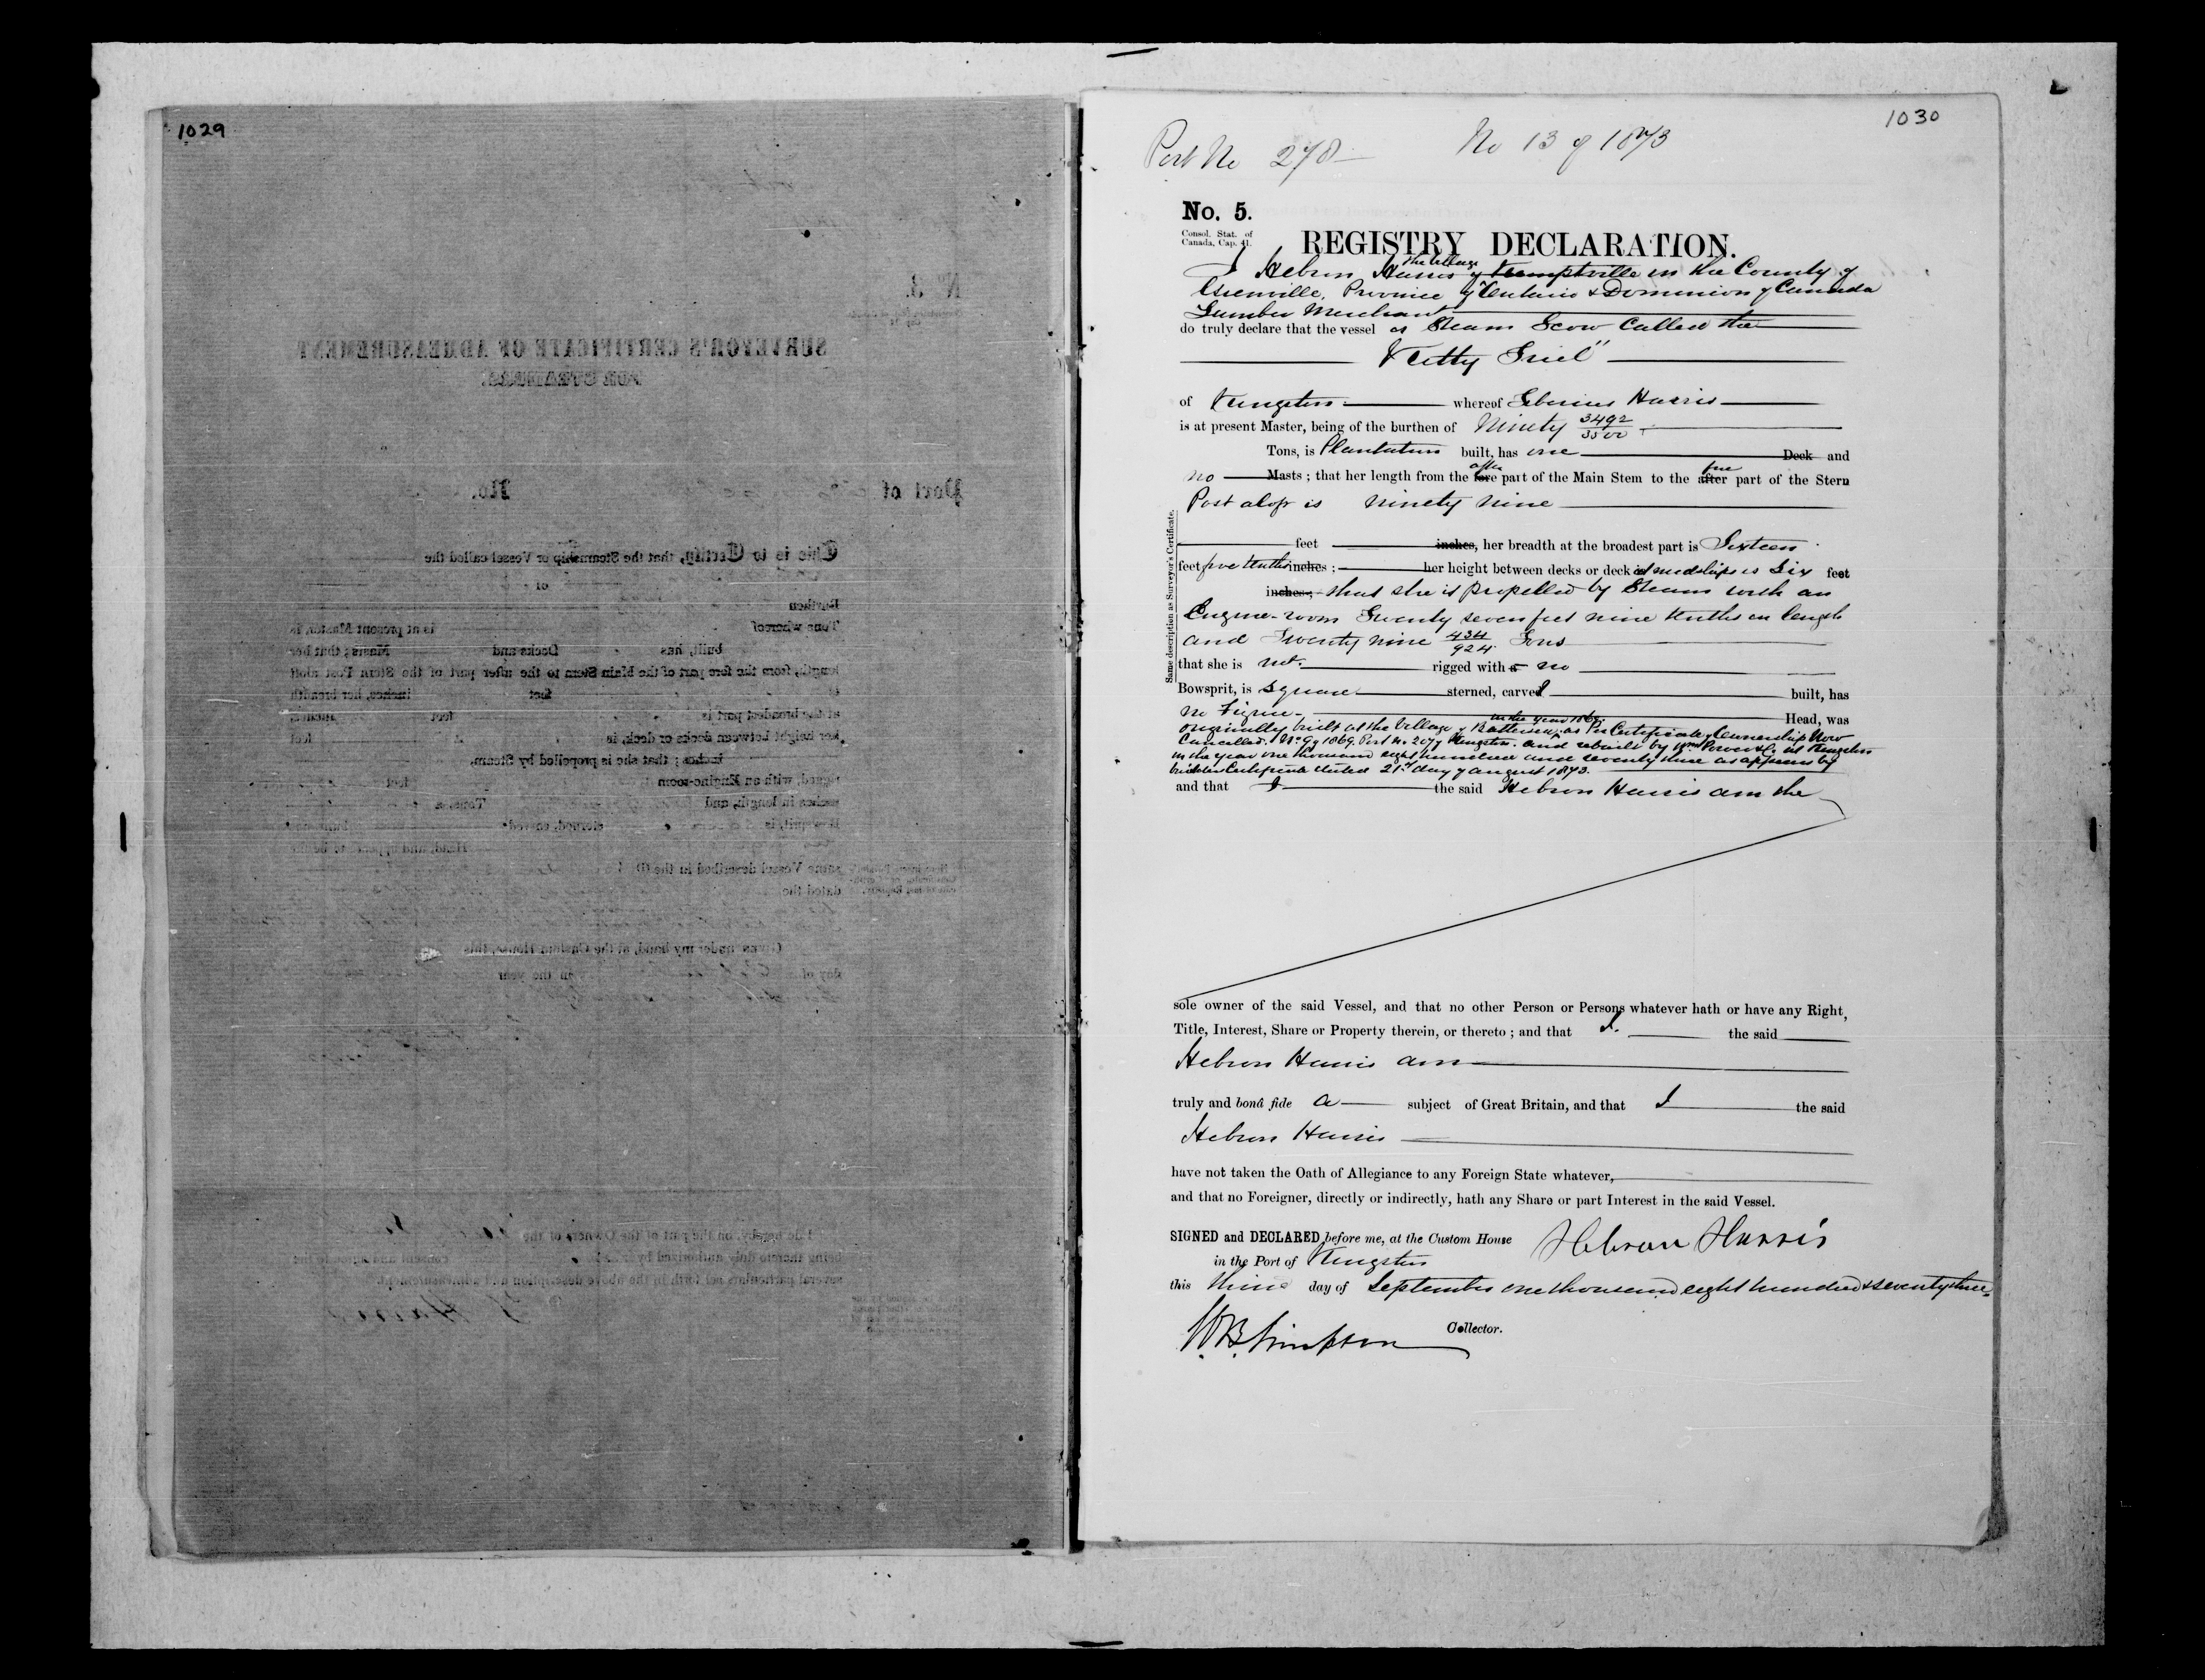 1029
1030
Port No 278 No 13 of 1873
No. 5.
Consol. Stat. of
Canada, Cap. 41.
REGISTRY DECLARATION.
the Village
I Hebron Harris of Kemptville in the County of
Grenville, Province of Ontario & Dominion of Canada
Lumber Merchant
do truly declare that the vessel or Steam Scow Called the
"Kitty Friel"
of Kingston whereof Harris
is at present Master, being of the burthen of Ninety 3492/3500
Tons, is Plantation built, has one Deck and
no Masts; that her length from the fore after part of the Main Stem to the after fore part of the Stern
Post aloft is ninety nine
feet inches, her breadth at the broadest part is Sixteen
feet five tenths inches; her height between decks or deck id midships is Six feet
inches; that she is propelled by Steam with an
Engine-room Twenty seven feet nine tenths in length
and Twenty nine 434/924 Tons
that she is not rigged with a no
Bowsprit, is Square sterned, carvel built, has
no Figure Head, was
originally built at the Village of Battersea, in the year 186 as Per Certificate of Ownership Now
Cancelled. No 9 of 1869. Port No 207 of Kingston. and rebuilt by Wm Power & Co at Kingston
in the year one thousand eight hundred and seventy three as appears by
builders Certificate dated 21st day of August 1873.
and that I the said Hebron Harris am the
Same description as Surveyor's Certificate.
sole owner of the said Vessel, and that no other Person or Persons whatever hath or have any Right,
Title, Interest, Share or Property therein, or thereto; and that I. the said
Hebron Harris am
truly and bonâ fide a subject of Great Britain, and that I the said
Hebron Harris
have not taken the Oath of Allegiance to any Foreign State whatever,
and that no Foreigner, directly or indirectly, hath any Share or part Interest in the said Vessel.
SIGNED and DECLARED before me, at the Custom House Hebron Harris
in the Port of Kingston
this day of September one thousand eight hundred & seventy three
W. B. Simpson Collector.
No 3.
SURVEYOR'S CERTIFICATE OF ADMEASUREMENT
FOR STEAMERS.
Port of No.
This is to Certify, that the Steamship or Vessel called the
of
Burthen
Tons whereof is at present Master, is
built, has Decks and Masts; that her
length, from the fore part of the Main Stem to the after part of the Stern Post aloft
is feet inches, her breadth
at the broadest part is feet inches,
her height between decks or deck, is feet
inches; that she is propelled by Steam,
with an Engine-room feet
inches in length, and Tons,
Bowsprit, is sterned, carvel
Head, and appears to be the
same Vessel described in the (f)
dated the
Given under my hand, at the Custom House, this
day of in the year
I do hereby, on the part of the Owners of the
being thereto duly authorized by consent and agree to the
several particulars set forth in the above description and admeasurement.
H Harris